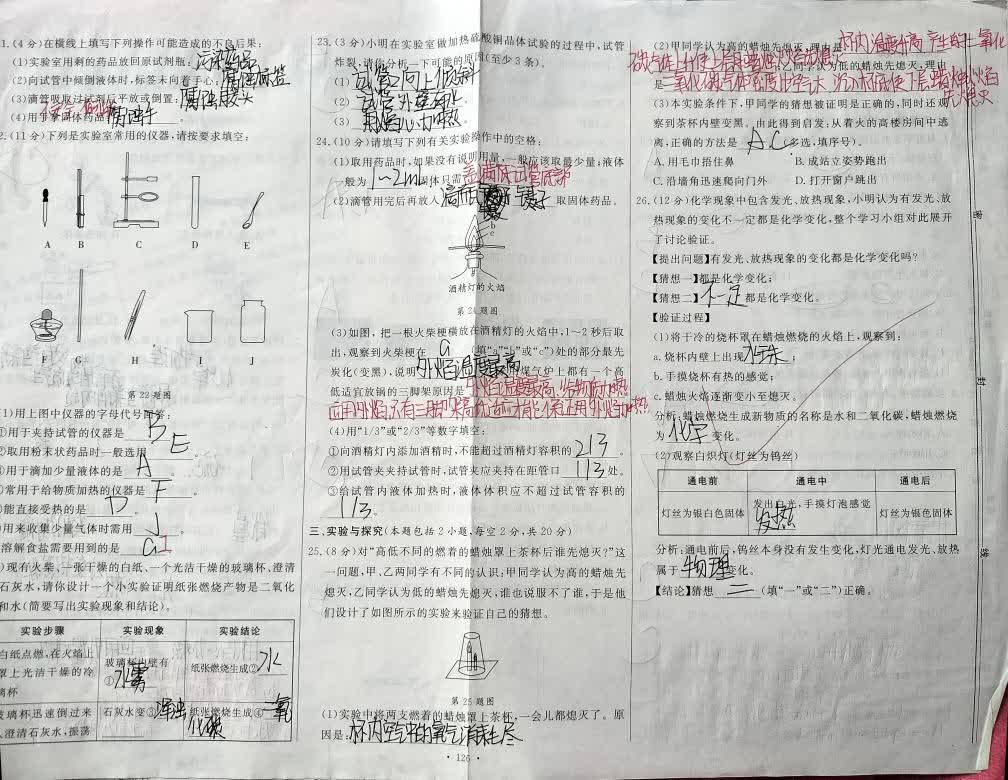 1.(4分)在横线上填写下列操作可能造成的不良后果:
(1)实验室用剩的药品放回原试剂瓶: 污染药品
(2)向试管中倾倒液体时,标签未向着手心: 腐蚀标签
(3)滴管吸取过试剂后平放或倒置: 腐蚀胶头
2.(11分)下列是实验室常用的仪器,请按要求填空:
A B C D E
F G H I J
第22题图
(1)用上图中仪器的字母代号回答:
①用于夹持试管的仪器是 B
②取用粉末状药品时一般选用 E 。
③用于滴加少量液体的是 A 。
④常用于给物质加热的仪器是 F 。
能直接受热的是 D 。
用来收集少量气体时需用 J
溶解食盐需要用到的是 G I
)现有火柴、一张干燥的白纸、一个光洁干燥的玻璃杯、澄清
石灰水,请你设计一个小实验证明纸张燃烧产物是二氧化
和水(简要写出实验现象和结论)。
实验步骤 实验现象 实验结论
白纸点燃,在火焰上
罩上光洁干燥的冷
璃杯
玻璃杯内壁有
①水雾
纸张燃烧生成②水
玻璃杯迅速倒过来
澄清石灰水,振荡
石灰水变③浑浊
纸张燃烧生成④二氧
化碳
23.(3分)小明在实验室做加热硫酸铜晶体试验的过程中,试管
炸裂,请你分析一下可能的原因(至少3条)。
(1) 试管口向上倾斜
(2) 试管外壁有水
(3)
24.(10分)请填写下列有关实验操作中的空格:
(1)取用药品时,如果没有说明用量,一般应该取最少量:液体
一般为 1~2mL 固体只需 盖满试管底部
(2)滴管用完后再放入 取固体药品。
b
c
酒精灯的火焰
第24题图
(3)如图,把一根火柴梗横放在酒精灯的火焰中,1~2秒后取
出,观察到火柴梗在 a (填“a”“b”或“c”)处的部分最先
炭化(变黑),说明 外焰温度最高 煤气炉上都有一个高
低适宜放锅的三脚架原因是 外焰温度最高,给物质加热
应用外焰,只有三脚架高低适应才能保证用外焰加热
(4)用“1/3”或“2/3”等数字填空:
①向酒精灯内添加酒精时,不能超过酒精灯容积的 2/3 。
②用试管夹夹持试管时,试管夹应夹持在距管口 1/3 处。
③给试管内液体加热时,液体体积应不超过试管容积的
1/3 。
三、实验与探究(本题包括2小题,每空2分,共20分)
25.(8分)对“高低不同的燃着的蜡烛罩上茶杯后谁先熄灭?”这
一问题,甲、乙两同学有不同的认识:甲同学认为高的蜡烛先
熄灭,乙同学认为低的蜡烛先熄灭,谁也说服不了谁,于是他
们设计了如图所示的实验来验证自己的猜想。
第25题图
(1)实验中将两支燃着的蜡烛罩上茶杯,一会儿都熄灭了。原
因是: 杯内空气中的氧气消耗尽
· 126 ·
(2)甲同学认为高的蜡烛先熄灭,理由是 杯内温度升高,产生的二氧化
是 二氧化碳气体密度比空气大,沉
(3)本实验条件下,甲同学的猜想被证明是正确的,同时还观
察到茶杯内壁变黑。由此得到启发:从着火的高楼房间中逃
离,正确的方法是 A.C (多选,填序号)。
A.用毛巾捂住鼻 B.成站立姿势跑出
C.沿墙角迅速爬向门外 D.打开窗户跳出
26.(12分)化学现象中包含发光、放热现象,小明认为有发光、放
热现象的变化不一定都是化学变化,整个学习小组对此展开
了讨论验证。
【提出问题】有发光、放热现象的变化都是化学变化吗?
【猜想一】都是化学变化;
【猜想二】 不一定 都是化学变化。
【验证过程】
(1)将干冷的烧杯罩在蜡烛燃烧的火焰上,观察到:
a.烧杯内壁上出现 水珠 ;
b.手摸烧杯有热的感觉;
c.蜡烛火焰逐渐变小至熄灭。
分析:蜡烛燃烧生成新物质的名称是水和二氧化碳,蜡烛燃烧
为 化学 变化。
(2)观察白炽灯(灯丝为钨丝)
通电前 通电中 通电后
灯丝为银白色固体
发出白光,手摸灯泡感觉
发热
灯丝为银色固体
分析:通电前后,钨丝本身没有发生变化,灯光通电发光、放热
属于 物理 变化。
【结论】猜想 二 (填“一”或“二”)正确。